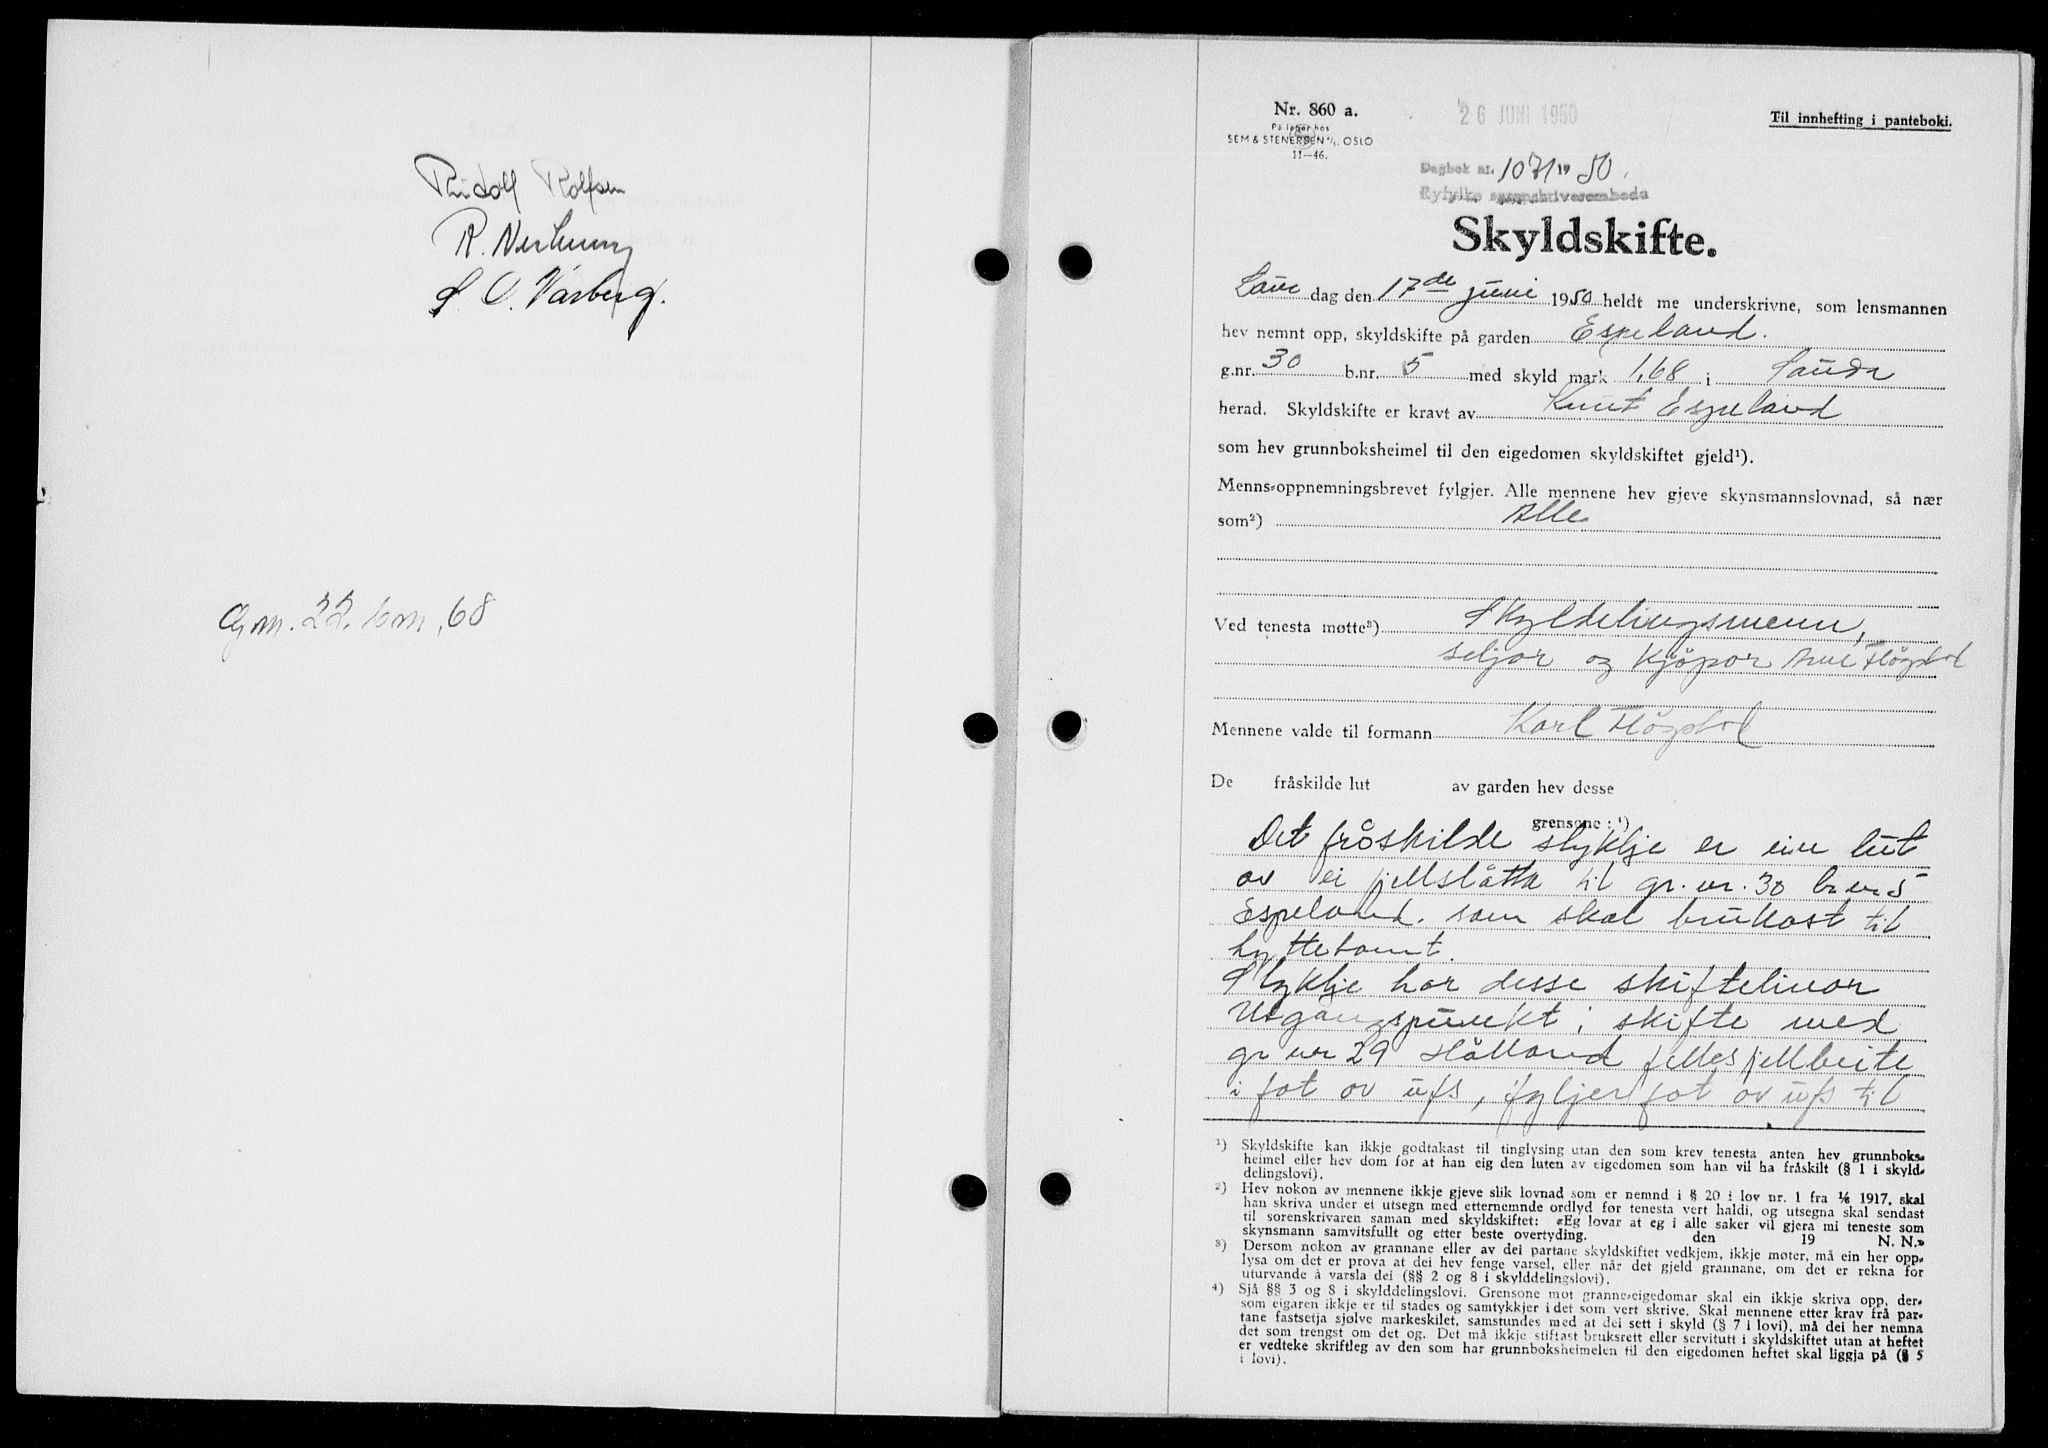 Rudolf Rolfsen
R.
S. O. Varberg.
Gm. 22. 68
Nr. 860 a.
På lager hos
SEM & STENERSEN A/S. OSLO
11—46.
26 JUNI 1950
Til innhefting i panteboki.
Dagbok nr. 1071 19 50.
Ryfylke sorenskriverembede
Skyldskifte.
Laur dag den 17de juni 1950 heldt me underskrivne, som lensmannen
hev nemnt opp, skyldskifte på garden Espeland.
g.nr. 30 b.nr. 5 med skyld mark 1,68 i Sauda
herad. Skyldskifte er kravt av Knut Espeland
som hev grunnboksheimel til den eigedomen skyldskiftet gjeld¹).
Menns-oppnemningsbrevet fylgjer. Alle mennene hev gjeve skynsmannslovnad, så nær
som²) Alle
Ved tenesta møtte³) Skyldelingsmenn,
seljar og kjøpar Arne Fløgstad
Mennene valde til formann Karl Fløgstad
De fråskilde lut av garden hev desse
grensone: ⁴)
Det fråskilde stykkje er ein lut
av ei fjellslåtta til gr. nr. 30 br nr 5
Espeland. som skal brukast til
hyttetomt.
Stykkje har desse skiftelinor
Utgangspunkt i skifte med
gr nr 29 Hålland felles fjellbeite
i fot av ufs, fyljer fot av ufs til
¹) Skyldskifte kan ikkje godtakast til tinglysing utan den som krev tenesta anten hev grunnboks-
heimel eller hev dom for at han eig den luten av eigedomen som han vil ha fråskilt (§ 1 i skyld-
delingslovi).
²) Hev nokon av mennene ikkje gjeve slik lovnad som er nemnd i § 20 i lov nr. 1 fra 1/6 1917, skal
han skriva under ei utsegn med etternemnde ordlyd før tenesta vert haldi, og utsegna skal sendast
til sorenskrivaren saman med skyldskiftet: «Eg lovar at eg i alle saker vil gjera mi teneste som
skynsmann samvitsfullt og etter beste overtyding. den 19 N. N.»
³) Dersom nokon av grannane eller av dei partane skyldskiftet vedkjem, ikkje møter, må ein her opp-
lysa om det er prova at dei hev fenge varsel, eller når det gjeld grannane, om det er rekna for
uturvande å varsla dei (§§ 2 og 8 i skylddelingslovi).
⁴) Sjå §§ 3 og 8 i skylddelingslovi. Grensone mot granne-eigedomar skal ein ikkje skriva opp, der-
som eigaren ikkje er til stades og samtykkjer i det som vert skrive. Skal mennene etter krav frå par-
tane fastsetja sjølve markeskilet, samstundes med at dei sett i skyld (§ 7 i lovi), må dei her nemna
det som trengst om det og. Det må ikkje stiftast bruksrett eller servitutt i skyldskiftet utan at heftet
er vedteke skriftleg av den som har grunnboksheimelen til den eigedomen heftet skal liggja på (§ 5
i lovi).